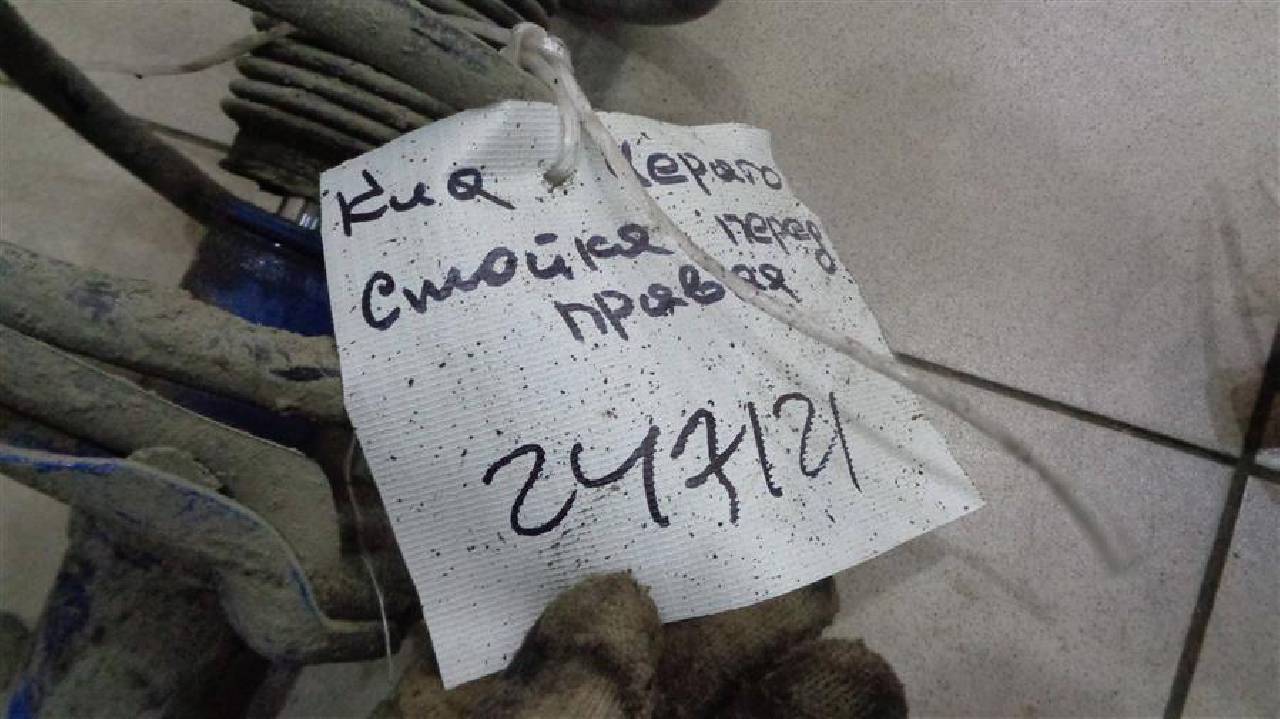 Киа Церато
Стойка перед
правая
247121